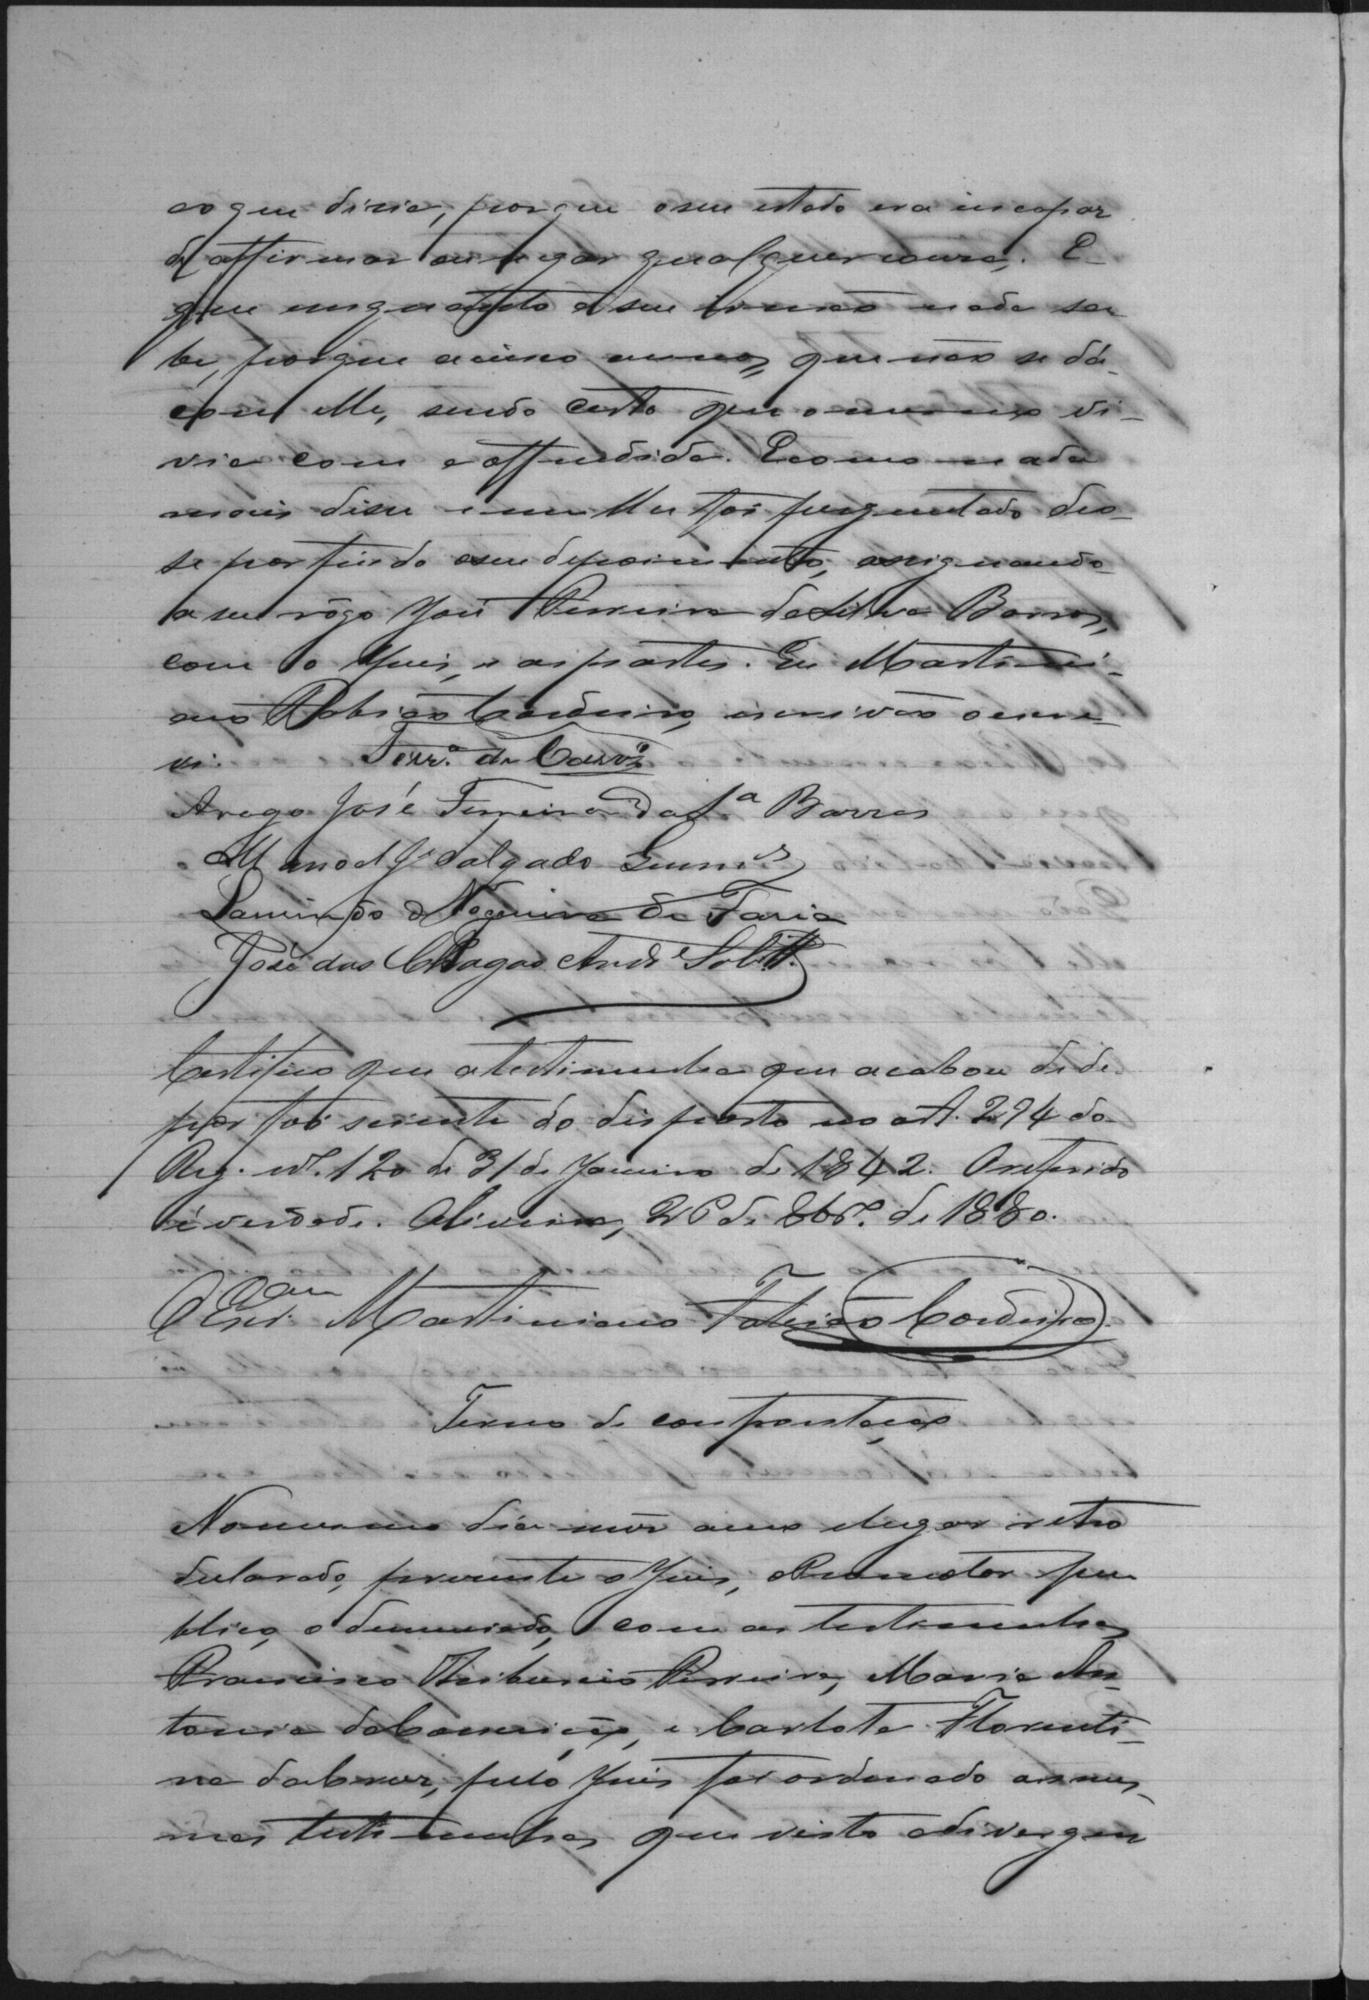 ao que dizia, porque o seu estado era incapaz
de affirmar ou negar qualquer cousa. E
que enquanto a seu irmão nada sa-
be, porque a cinco annos, que não se dá
com elle, sendo certo que o mesmo vi-
via com a offendida. E como nada
mais disse e nem lhe foi perguntado deo-
se por findo o seu depoimento, assignando
a seu rôgo José Ferreira da Silva Barros,
com o Juis, e as partes. Eu Martini-
ano Fabricio Cordeiro, escrivão o escre-
vi. Ferr.ª de Carv.º
Arogo José Ferreira da S.ª Barros
Manoel J.e Salgado Gomes
Laurindo Nogueira de Faria
José das Chagas Andr.e Sob.
Certifico que a testimunha que acabou de de-
por foi sciente do disposto no Art. 294 do
Reg. nº. 120 de 31 de Janeiro de 1842. O referido
é verdade. Oliveira, 26 de 8bro. de 1880.
O Escr.am Martiniano Fabricio Cordeiro
Termo de confrontação
No mesmo dia mez anno e lugar retro
declarado, presente o Juis, o Promotor pu
blico, o denunciado, com as testimunhas
Francisco Tiburcio Ferreira, Maria An-
tonia da Conceição, e Carlota Florenti-
na da Cruz, pelo Juis foi ordenado as mes-
mas testimunhas que visto a divergen